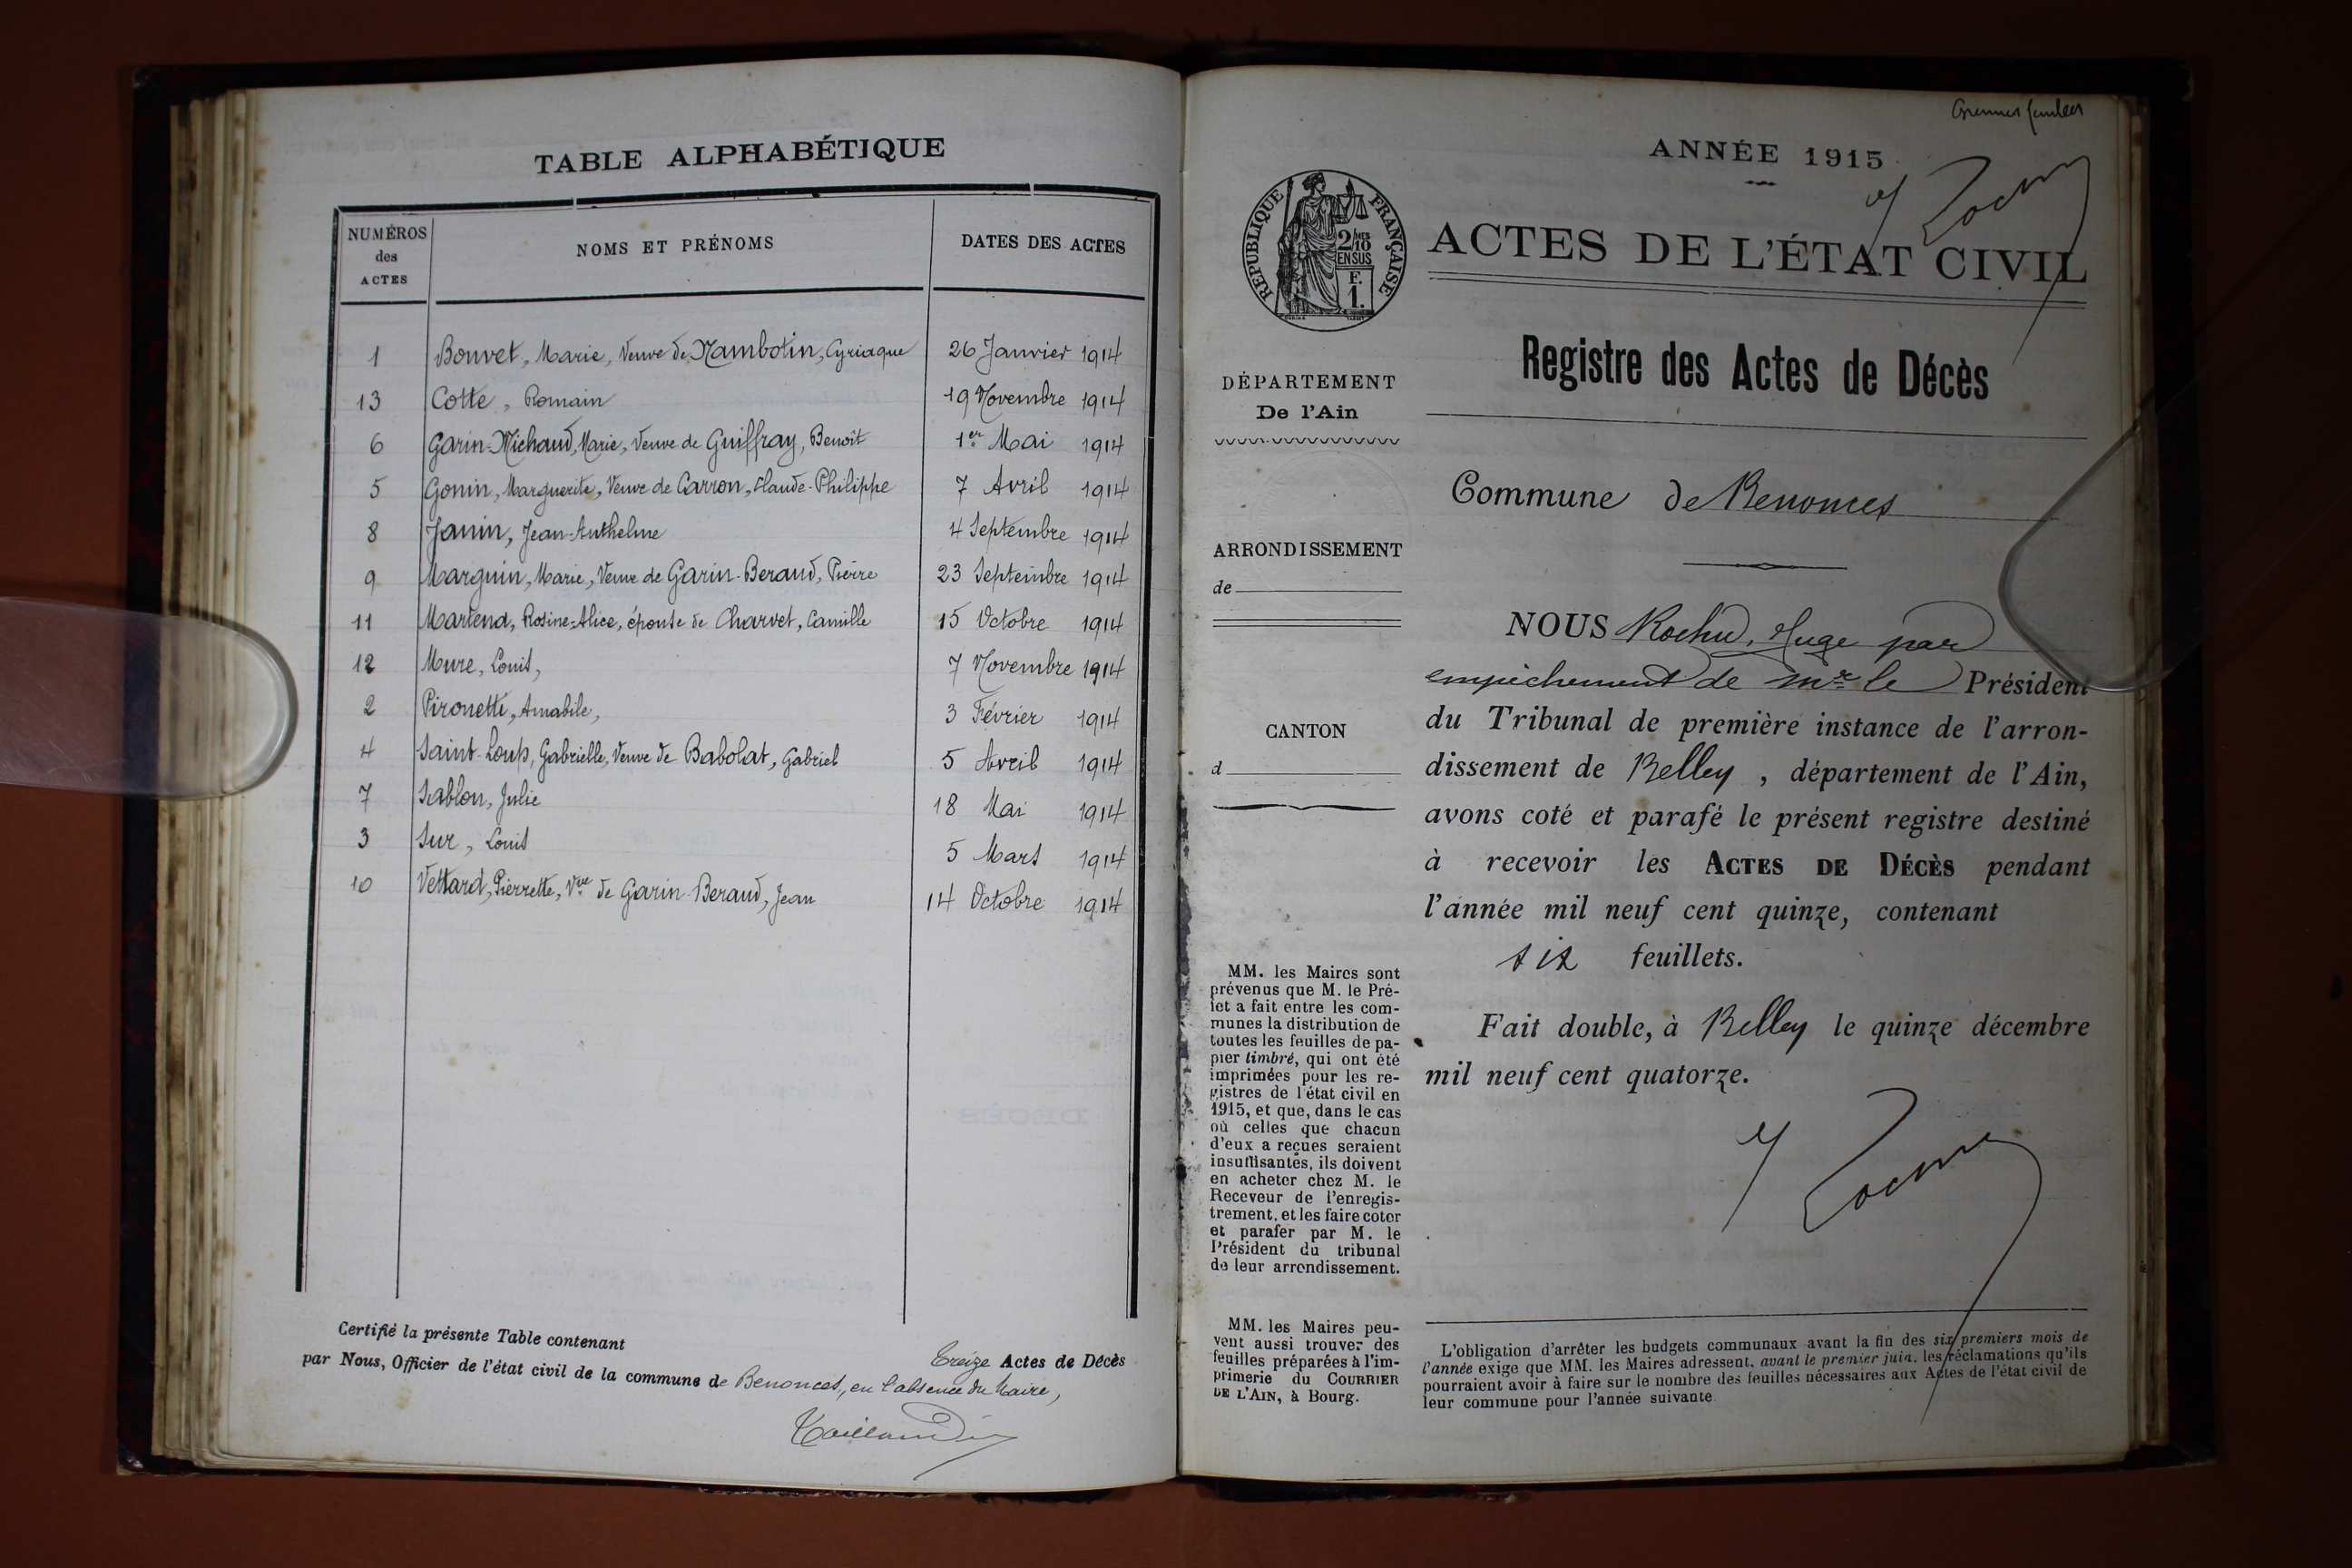 TABLE ALPHABÉTIQUE
NUMÉROS des ACTES
NOMS ET PRÉNOMS
DATES DES ACTES
1 Bonvet, Marie, Veuve de Nambotin, Cyriaque 26 Janvier 1914
13 Cotte, Romain 19 Novembre 1914
6 Garin-Michaud, Marie, Veuve de Guiffray, Benoît 1er Mai 1914
5 Gonin, Marguerite, Veuve de Carron, Claude-Philippe 7 Avril 1914
8 Janin, Jean-Anthelme 4 Septembre 1914
9 Marguin, Marie, Veuve de Garin-Beraud, Pierre 23 Septembre 1914
11 Martend, Rosine-Alice, épouse de Charvet, Camille 15 Octobre 1914
12 Mure, Louis, 7 Novembre 1914
2 Pironette, Amabile, 3 Février 1914
4 Saint-Loup, Gabrielle, Veuve de Babolat, Gabriel 5 Avril 1914
7 Sablon, Julie 18 Mai 1914
3 Sur, Louis 5 Mars 1914
10 Vettard, Pierrette, Vve de Garin-Beraud, Jean 14 Octobre 1914
Certifié la présente Table contenant Treize Actes de Décès
par Nous, Officier de l'état civil de la commune de Benonces, en l'absence du Maire,
ANNÉE 1915
RÉPUBLIQUE FRANÇAISE
2/10 MES
EN SUS
F.
1.
ACTES DE L'ÉTAT CIVIL
Registre des Actes de Décès
DÉPARTEMENT
De l'Ain
ARRONDISSEMENT
de
CANTON
d
Commune de Benonces
NOUS Rochu, Juge par
empêchement de Mr le Président
du Tribunal de première instance de l'arron-
dissement de Belley, département de l'Ain,
avons coté et parafé le présent registre destiné
à recevoir les ACTES DE DÉCÈS pendant
l'année mil neuf cent quinze, contenant
six feuillets.
Fait double, à Belley le quinze décembre
mil neuf cent quatorze.
MM. les Maires sont
prévenus que M. le Pré-
fet a fait entre les com-
munes la distribution de
toutes les feuilles de pa-
pier timbré, qui ont été
imprimées pour les re-
gistres de l'état civil en
1915, et que, dans le cas
où celles que chacun
d'eux a reçues seraient
insuffisantes, ils doivent
en acheter chez M. le
Receveur de l'enregis-
trement, et les faire coter
et parafer par M. le
Président du tribunal
de leur arrondissement.
MM. les Maires peu-
vent aussi trouver des
feuilles préparées à l'im-
primerie du COURRIER
DE L'AIN, à Bourg.
L'obligation d'arrêter les budgets communaux avant la fin des six premiers mois de
l'année exige que MM. les Maires adressent, avant le premier juin, les réclamations qu'ils
pourraient avoir à faire sur le nombre des feuilles nécessaires aux Actes de l'état civil de
leur commune pour l'année suivante.